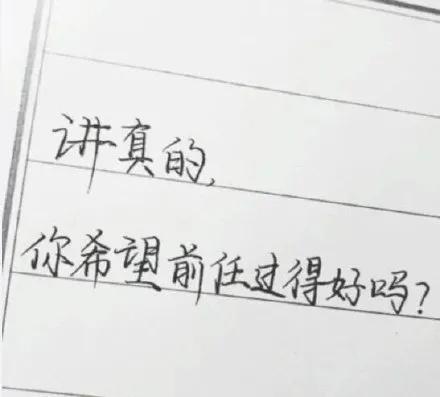 讲真的,
你希望前任过得好吗?